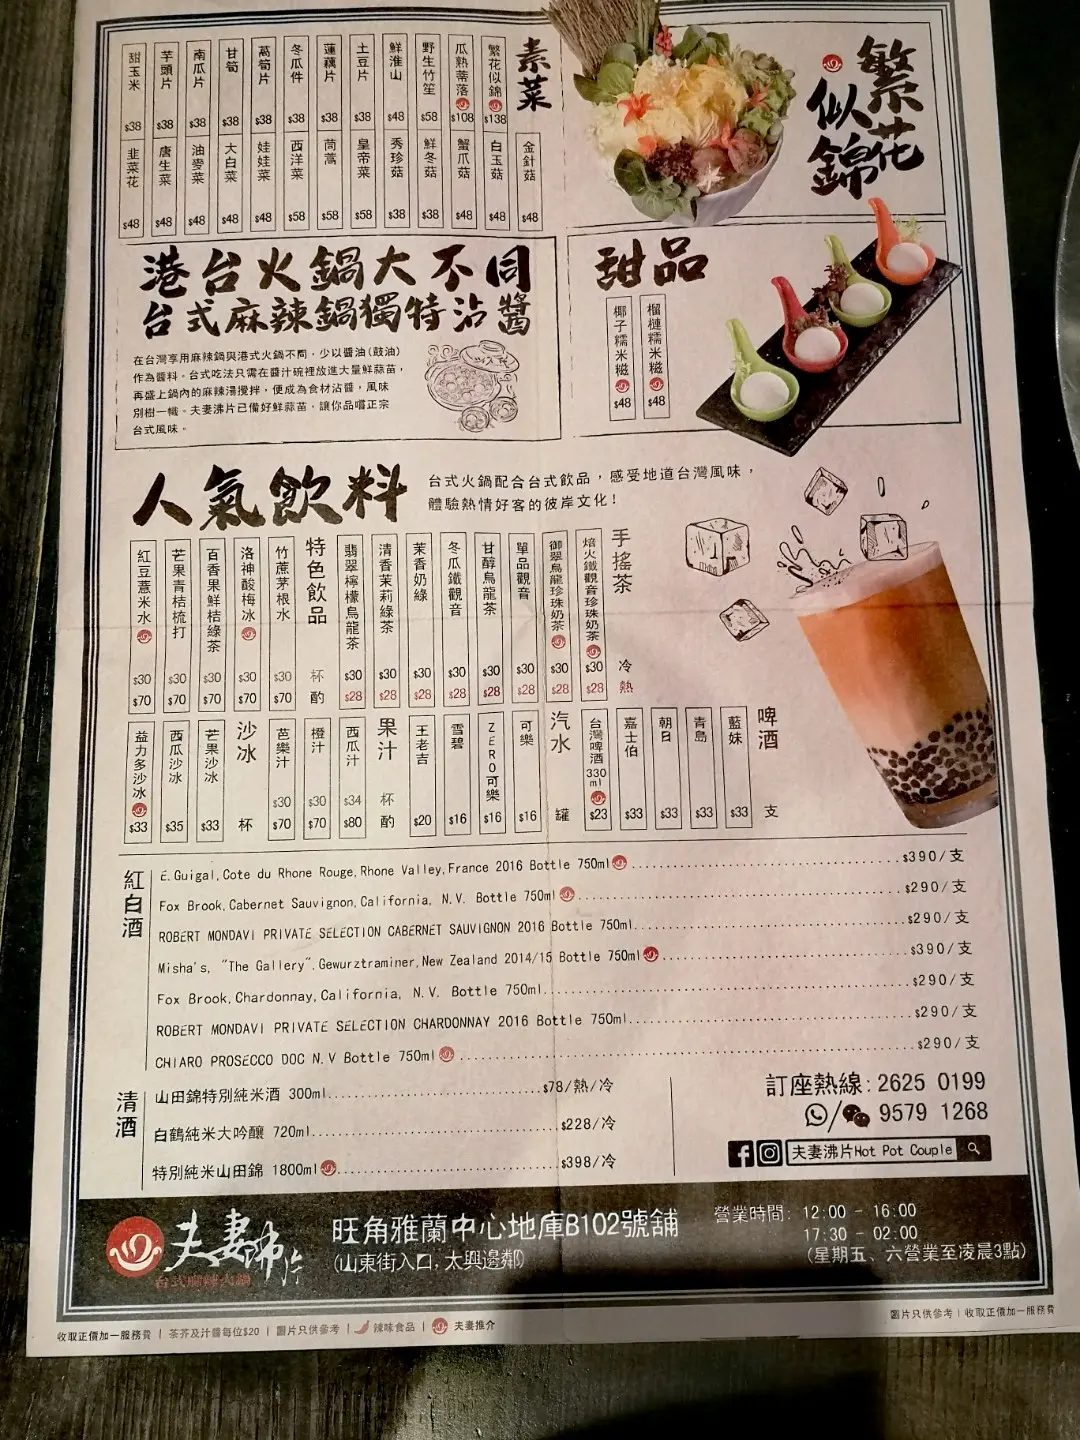 繁花似錦
素菜
繁花似錦 $138
瓜熟蒂落 $108
野生竹笙 $58
鮮淮山 $48
土豆片 $38
蓮藕片 $38
冬瓜件 $38
萵筍片 $38
甘筍 $38
南瓜片 $38
芋頭片 $38
甜玉米 $38
金針菇 $48
白玉菇 $48
蟹爪菇 $48
鮮冬菇 $38
秀珍菇 $38
皇帝菜 $58
茼蒿 $58
西洋菜 $58
娃娃菜 $48
大白菜 $48
油麥菜 $48
唐生菜 $48
韭菜花 $48
港台火鍋大不同
台式麻辣鍋獨特沾醬
在台灣享用麻辣鍋與港式火鍋不同，少以醬油(鼓油)
作為醬料。台式吃法只需在醬汁碗裡放進大量鮮蒜苗，
再盛上鍋內的麻辣湯攪拌，便成為食材沾醬，風味
別樹一幟。夫妻沸片已備好鮮蒜苗，讓你品嚐正宗
台式風味。
甜品
榴槤糯米糍 $48
椰子糯米糍 $48
人氣飲料
台式火鍋配合台式飲品，感受地道台灣風味，
體驗熱情好客的彼岸文化！
手搖茶 冷 熱
焙火鐵觀音珍珠奶茶 $30 $28
御翠烏龍珍珠奶茶 $30 $28
單品觀音 $30 $28
甘醇烏龍茶 $30 $28
冬瓜鐵觀音 $30 $28
茉香奶綠 $30 $28
清香茉莉綠茶 $30 $28
翡翠檸檬烏龍茶 $30 $28
特色飲品 杯 酌
竹蔗茅根水 $30 $70
洛神酸梅冰 $30 $70
百香果鮮桔綠茶 $30 $70
芒果青桔梳打 $30 $70
紅豆薏米水 $30 $70
啤酒 支
藍妹 $33
青島 $33
朝日 $33
嘉士伯 $33
台灣啤酒 330ml $23
汽水 罐
可樂 $16
ZERO可樂 $16
雪碧 $16
王老吉 $20
果汁 杯 酌
西瓜汁 $34 $80
橙汁 $30 $70
芭樂汁 $30 $70
沙冰 杯
芒果沙冰 $33
西瓜沙冰 $35
益力多沙冰 $33
紅白酒
E.Guigal,Cote du Rhone Rouge,Rhone Valley,France 2016 Bottle 750ml $390/支
Fox Brook,Cabernet Sauvignon,California, N.V. Bottle 750ml $290/支
ROBERT MONDAVI PRIVATE SELECTION CABERNET SAUVIGNON 2016 Bottle 750ml $290/支
Misha's, "The Gallery",Gewurztraminer,New Zealand 2014/15 Bottle 750ml $390/支
Fox Brook,Chardonnay,California, N.V. Bottle 750ml $290/支
ROBERT MONDAVI PRIVATE SELECTION CHARDONNAY 2016 Bottle 750ml $290/支
CHIARO PROSECCO DOC N.V Bottle 750ml $290/支
清酒
山田錦特別純米酒 300ml $78/熱/冷
白鶴純米大吟釀 720ml $228/冷
特別純米山田錦 1800ml $398/冷
訂座熱線:2625 0199
9579 1268
夫妻沸片Hot Pot Couple
夫妻沸片
台式麻辣火鍋
旺角雅蘭中心地庫B102號舖
(山東街入口,太興邊鄰)
營業時間: 12:00 - 16:00
17:30 - 02:00
(星期五、六營業至凌晨3點)
收取正價加一服務費 | 茶芥及汁醬每位$20 | 圖片只供參考 | 辣味食品 | 夫妻推介
圖片只供參考 | 收取正價加一服務費